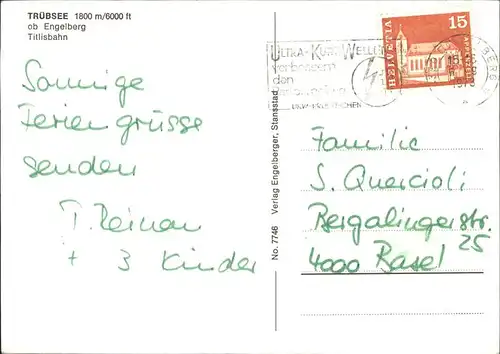 TRÜBSEE 1800 m/6000 ft
ob Engelberg
Titlisbahn
Sonnige
Feriengrüsse
senden
+ 3 Kinder
No. 7746 Verlag Engelberger, Stansstad
ULTRA-KURZ-WELLEN
verbessern
den
HELVETIA
15
APPENZELL
Familie
S. Quercioli
Bergalingerstr.
25
4000 Basel